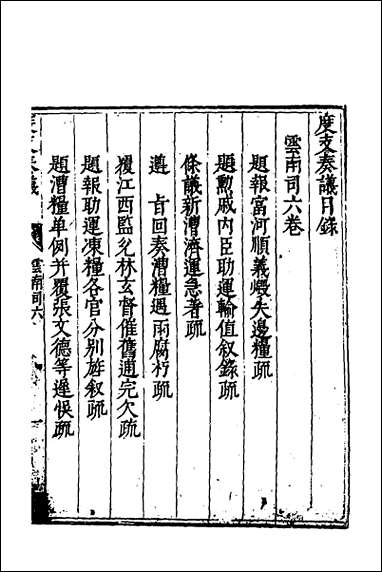 度支奏議目錄
雲南司六卷
題報富河順義煖失邊糧疏
題勲戚内臣助運輸值叙錄疏
條議新漕濟運急著疏
遵 旨回奏漕糧遇雨腐朽疏
覆江西監兌林玄督催舊逋完欠疏
題報助運凍糧各官分別旌叙疏
題漕糧单例并覆張文德等遲悞疏
雲南司六